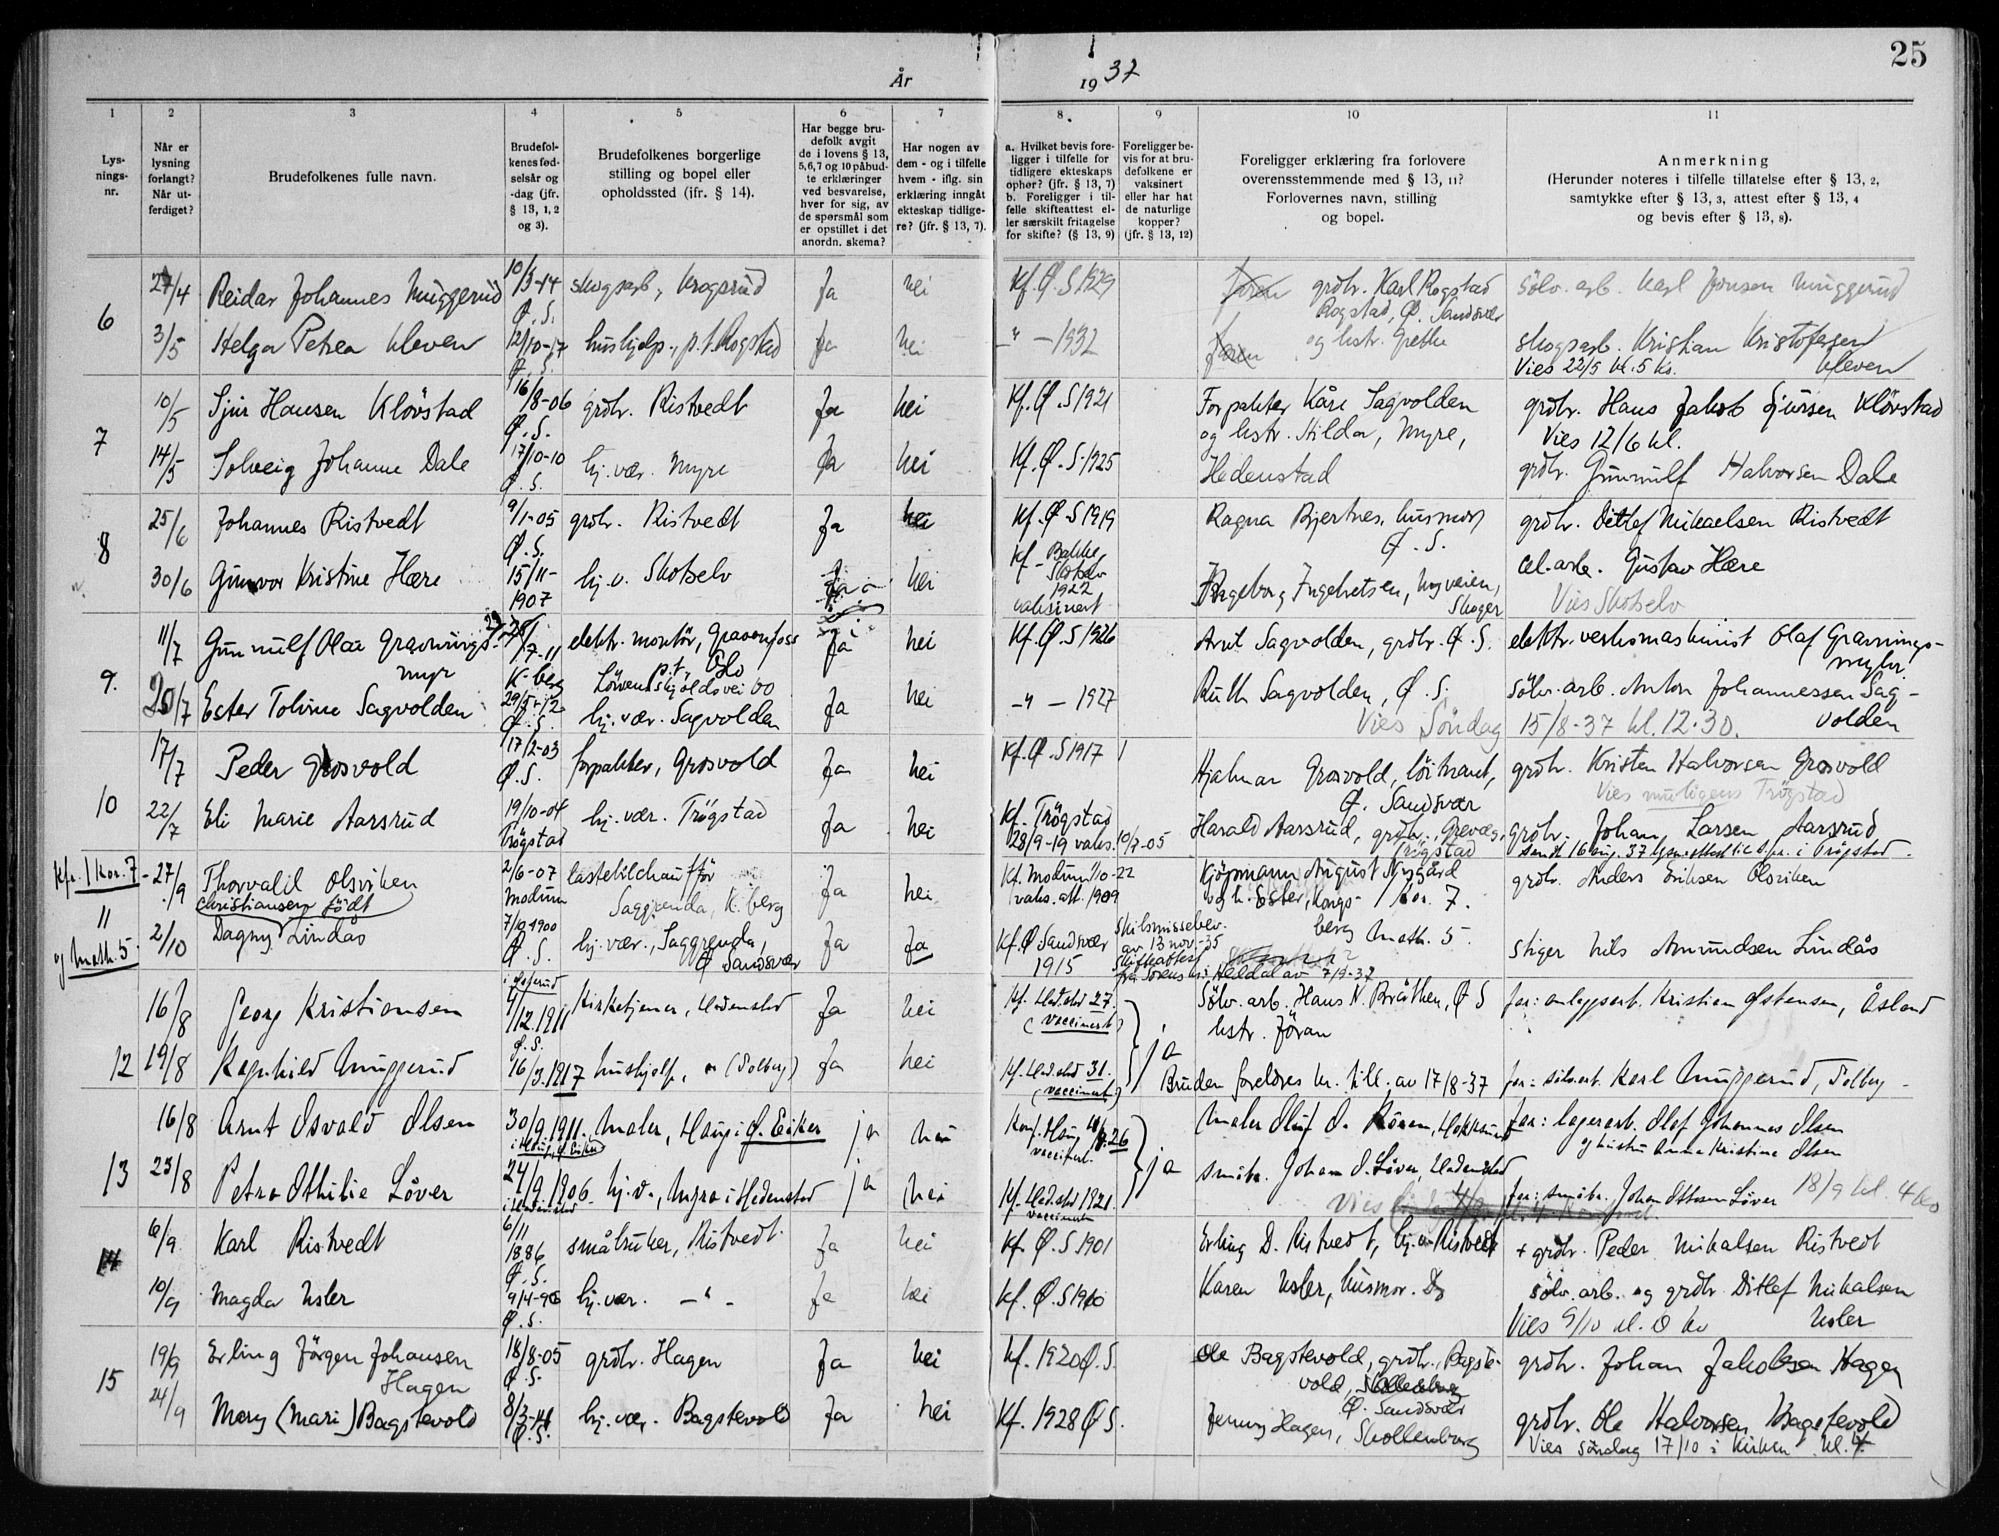 25
År
1937
1
2
3
4
5
6
7
8.
9
10
11
Lys-
nings-
nr.
Når er
lysning
forlangt?
Når ut-
ferdiget?
Brudefolkenes fulle navn.
Brudefol-
kenes fød-
selsår og
-dag (jfr.
§ 13, 1, 2
og 3).
Brudefolkenes borgerlige
stilling og bopel eller
opholdssted (ifr. § 14).
Har begge bru-
defolk avgit
de i lovens § 13,
5,6,7 og 10 påbud-
te erklæringer
ved besvarelse,
hver for sig, av
de spørsmål som
er opstillet i det
anordn. skema?
Har nogen av
dem - og i tilfelle
hvem - iflg. sin
erklæring inngått
ekteskap tidlige-
re? (jfr. § 13, 7).
a. Hvilket bevis fore-
ligger i tilfelle for
tidligere ekteskaps
ophør? (jfr. § 13, 7)
b. Foreligger i til-
felle skifteattest el-
ler særskilt fritagelse
for skifte? (§ 13, 9)
Foreligger be-
vis for at bru-
defolkene er
vaksinert
eller har hat
de naturlige
kopper?
(jfr. § 13, 12)
Foreligger erklæring fra forlovere
overensstemmende med § 13, 11?
Forlovernes navn, stilling
og bopel.
Anmerkning
(Herunder noteres i tilfelle tillatelse efter § 13, 2,
samtykke efter § 13, 3, attest efter § 13, 4
og bevis efter § 13, 8).
6
27/4 Reidar Johannes Muggerud 10/3-14 Ø.S. skogsarb., Krogsrud Ja nei Kf. Ø.S 1929 grdbr. Karl Rogstad sølv.arb. Karl Jonsen Muggerud
Rogstad, Ø. Sandsvær
3/5 Helga Petrea Kleven 12/10-17 Ø.S. hushjelp, p.t. Rogstad Ja nei -"- 1932 og hstr. Grethe skogsarb. Kristian Kristofersen
Kleven
Vies 22/5 kl. 5
7
10/5 Sjur Hansen Kløvstad 16/8-06 Ø.S. grdbr. Ristvedt Ja nei Kf. Ø.S 1921 Forpakter Kåre Sagvolden grdbr. Hans Jakob Sjursen Kløvstad
og hstr. Hilda, Myre, Vies 12/6 kl.
14/5 Solveig Johanne Dale 17/10-10 Ø.S. hj.vær. Myre Ja nei Kf. Ø.S. 1925 Hedenstad grdbr. Gunnulf Halvorsen Dale
8
25/6 Johannes Ristvedt 9/1-05 Ø.S. grdbr. Ristvedt Ja nei Kf. Ø.S 1919 Ragna Bjertnes, husmor, grdbr. Ditlef Mikaelsen Ristvedt
Ø.S.
30/6 Gunvor Kristine Hære 15/11-1907 hj.v. Skotselv Ja nei Kf. Bakke Skotselv 1922 vaksinert Ingeborg Ingebretsen, Nyveien, cel.arb. Gustav Hære
Skoger Vies Skotselv
9.
11/7 Gunnulf Olaa Gravnings- K-berg elektr. montør, Gravenfoss Ja nei Kf. Ø.S 1926 Arnt Sagvolden, grdbr. Ø.S. elektr. verksmaskinist Olaf Gravnings-
myr p.t. Oslo myhr.
Løvenskjoldsvei
20/7 Ester Toline Sagvolden 29/5-12 Ø.S. hj.vær. Sagvolden Ja nei -"- 1927 Ruth Sagvolden, Ø.S. sølv.arb. Anton Johannessen Sag-
volden
Vies Søndag 15/8-37 kl. 12.30.
10
17/7 Peder Grosvold 17/2-03 Ø.S. forpakter, Grosvold Ja nei Kf. Ø.S 1917 Hjalmar Grosvold, løitnant, grdbr. Kristen Halvorsen Grosvold
Ø. Sandsvær Vies muligens Trøgstad
22/7 Eli Marie Aarsrud 19/10-04 Trøgstad hj.vær. Trøgstad Ja nei Kf. Trøgstad 28/9-19 vaks. 10/7-05 Harald Aarsrud, grdbr., grdbr. Johan Larsen Aarsrud
Trøgstad
11
Kfr. 1 Kor. 7
og Math. 5
27/9 Thorvald Olsviken 2/6-07 Modum lastebilchauffør Ja nei Kf. Modum 1/10-22 Kjøpmann August Nygård grdbr. Anders Eriksen Olsviken
Saggrenda, K.berg vaks. att. 1909 og h. Ester, Kongs- 1 Kor. 7.
Christiansen født berg Math. 5.
2/10 Dagny Lindås 7/10 1900 Ø.S. hj.vær., Saggrenda, Ja Ja Kf. Ø Sandsvær 1915 Skilsmissebev. av 13 nov.-35 stiger Nils Amundsen Lindås
Ø Sandsvær Skifteattest 7/9-37
12
16/8 Georg Kristiansen 4/12.1911 Ø.S. Kirketjener, Hedenstad Ja nei Kf. Hed.stad 27. (vaccinert) Sølv.arb. Hans N. Bråthen, Ø S far: anlegsarb. Kristian Østensen, Åsland
hstr. Jøran
ja
19/8 Ragnhild Muggerud 16/3.1917 hushjelp, " (Solberg) Ja nei Kf. Hed.stad 31. (vaccinert) Bruden foreldres kr. till. av 17/8-37 far: sølv.arb. Karl Muggerud, Solberg
13
16/8 Arnt Osvald Olsen 30/9.1911. i Haug, Ø. Eiker Maler, Haug i Ø. Eiker ja nei Konf. Haug 26 vaccinert. Maler Oluf O. Røren, Hokksund far: lagerarb. Olaf Johannes Olsen
og hustru Anna Kristine Olsen
ja
23/8 Petra Othilie Løver 24/9.1906. i Hedenstad hj.v., Myra i Hedenstad ja nei Kf. Hed.stad 1921. vaccinert småbr. Johan O. Løver, Hedenstad far: småbr. Johan Ottesen Løver 18/9 kl. 4
Vies
14
6/9 Karl Ristvedt 6/11 1886 Ø.S. småbruker, Ristvedt. Ja nei Kf. Ø.S 1901 Erling D. Ristvedt, Ristvedt + grdbr. Peder Mikalsen Ristvedt
10/9 Magda Usler 9/4-96 Ø.S. hj.vær. -"- Ja nei Kf. Ø.S 1910 Karen Usler, husmor. sølv.arb. og grdbr. Ditlef Mikalsen
Usler
Vies 9/10 kl.
15
19/9 Erling Jørgen Johansen 18/8-05 Ø.S. grdbr. Hagen Ja nei Kf. 1920 Ø.S. Ole Bagstevold, grdbr., Bagste- grdbr. Johan Jakobsen Hagen
Hagen vold,
Ø. Sandsvær
24/9 Mary (Mari) Bagstevold Ø.S. hj.vær. Bagstevold Ja nei Kf. 1928 Ø S. Jenny Hagen, Skollenborg grdbr. Ole Halvorsen Bagstevold
Vies søndag 17/10 i kirken kl. 4